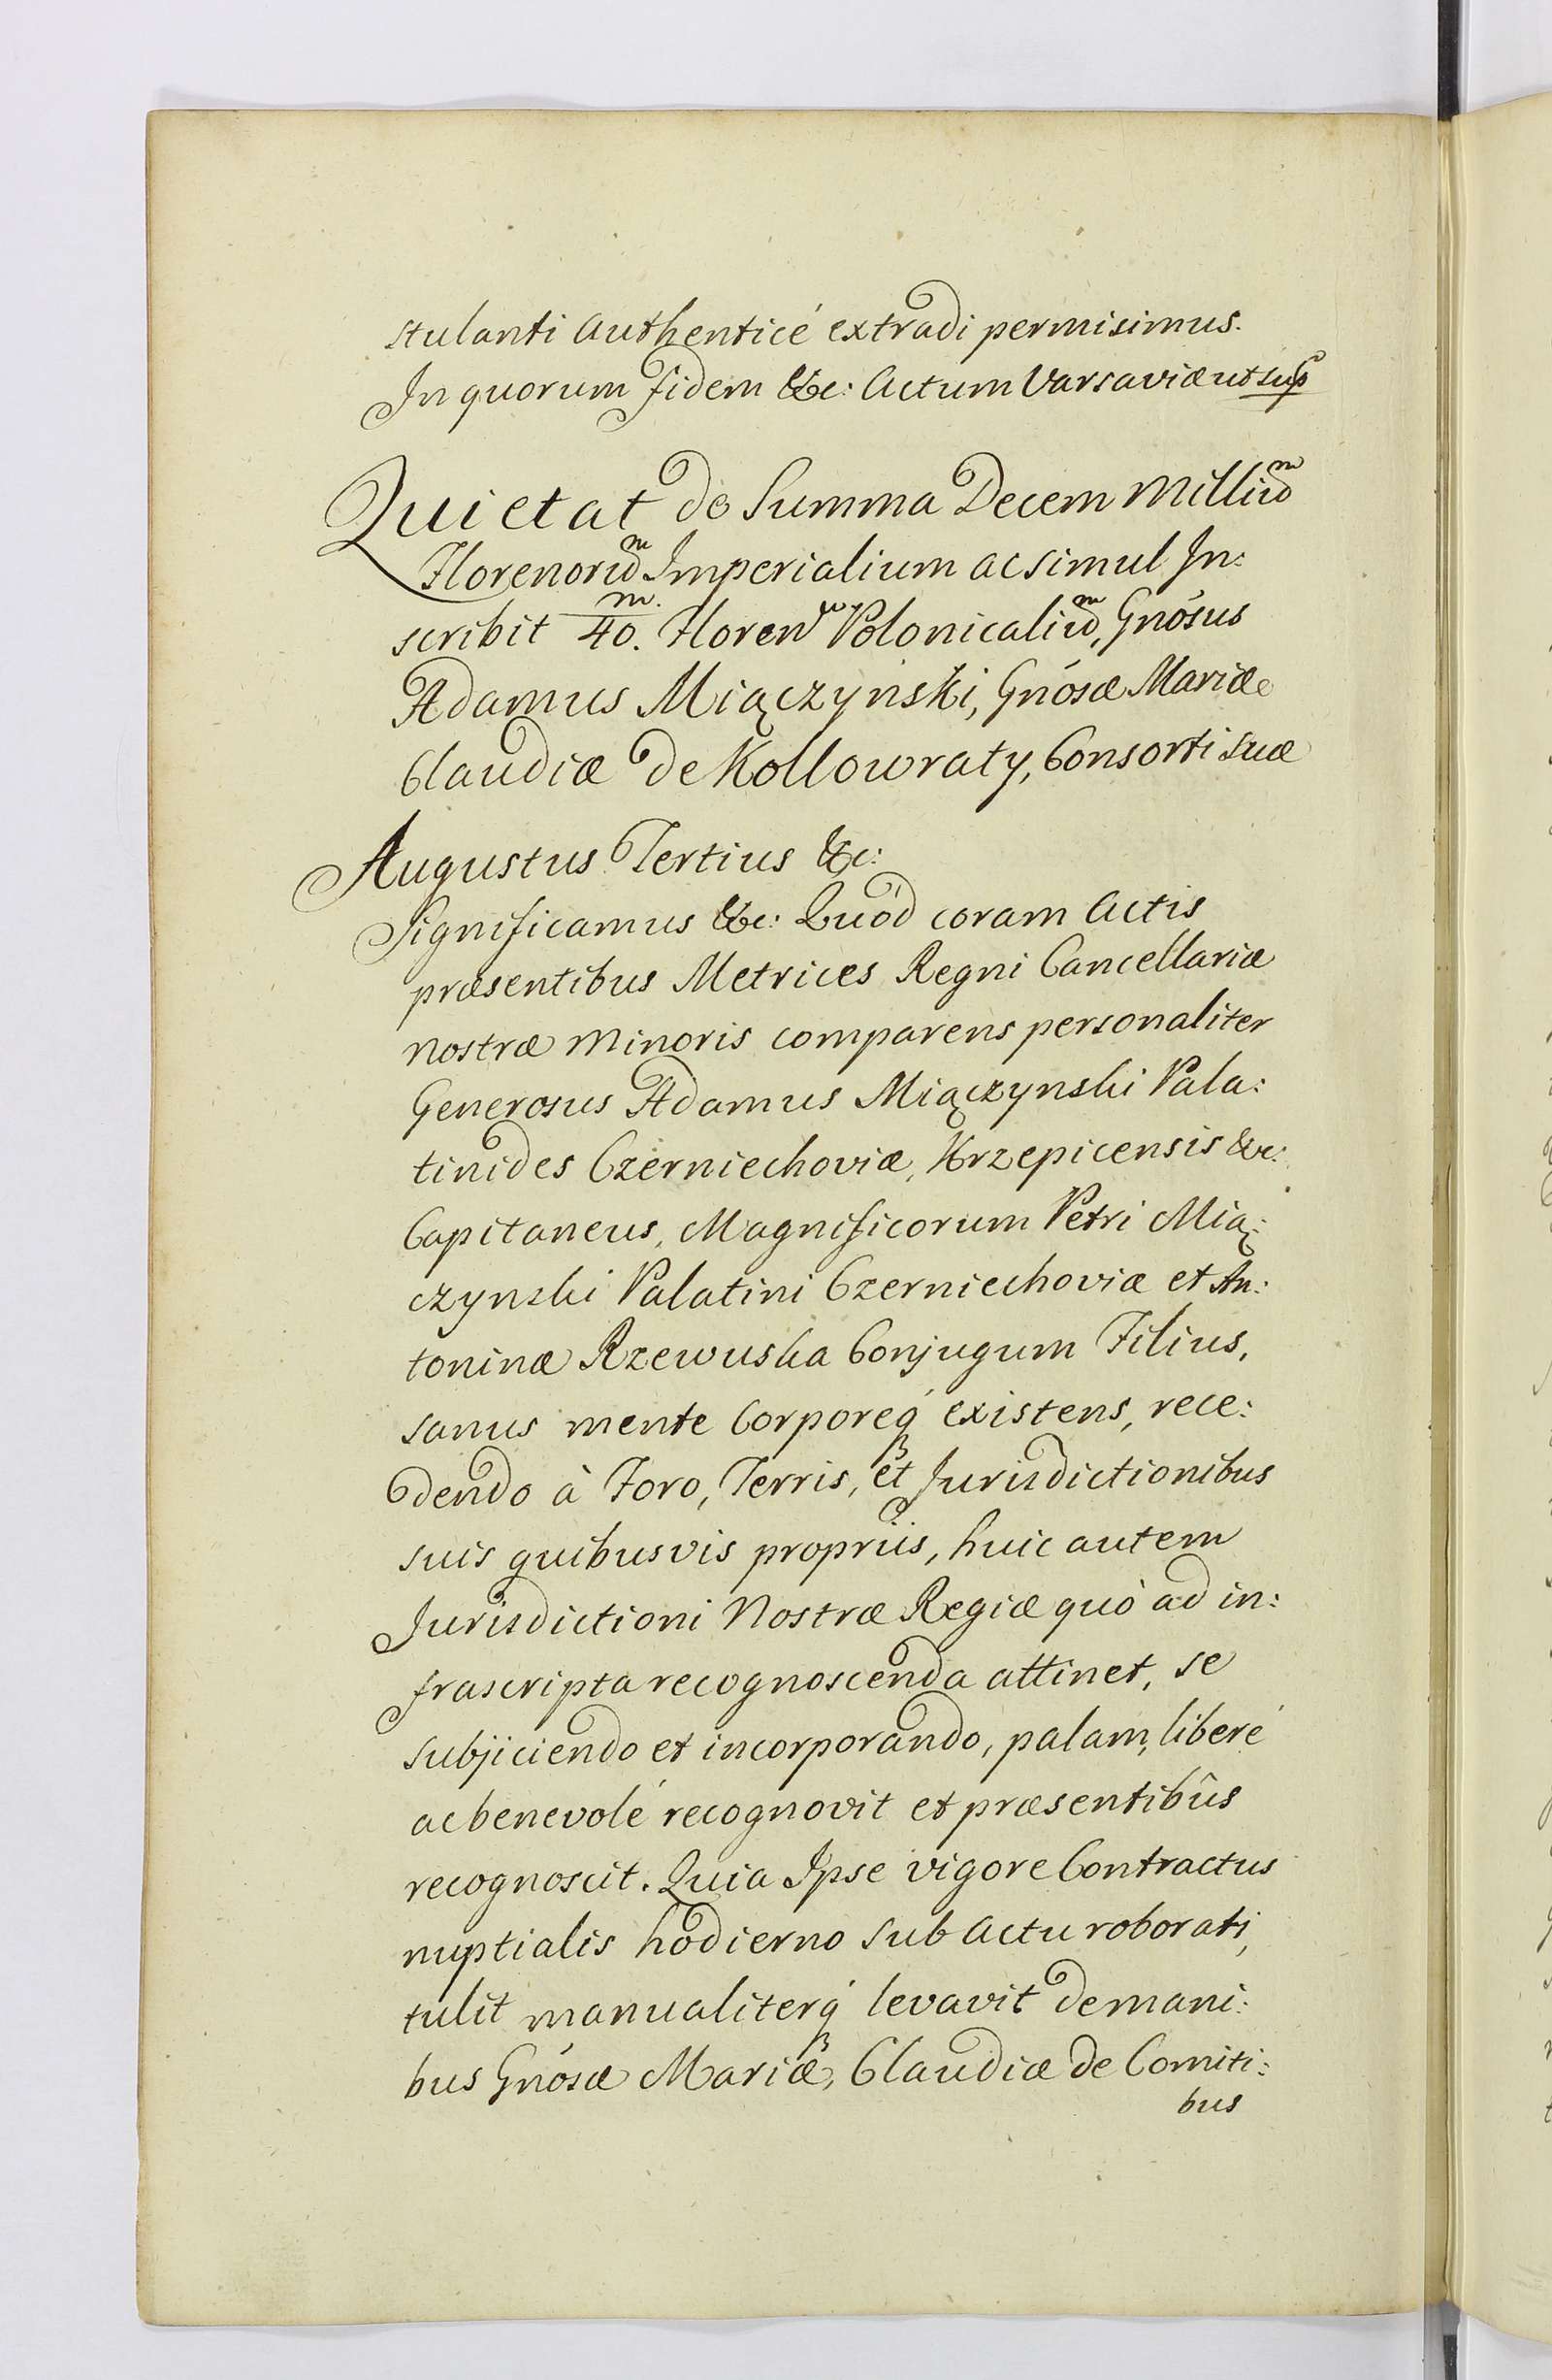 stulanti Authenticé extradi permisimus.
In quorum Fidem &c: Actum Varsaviæ ut sup
Quietat de Summa Decem Milliũm
Florenorũm Imperialium ac simul In:
scribit 40.m Floren Polonicaliũm, Gnósus
Adamus Miączyński, Gnósæ Mariæ
Claudiæ de Kollowraty, Consorti suæ
Augustus Tertius &c:
Significamus &c: Quód coram Actis
præsentibus Metrices Regni Cancellariæ
Nostræ Minoris comparens personaliter
Generosus Adamus Miączynski Pala:
tinides Czerniechoviæ, Krzepicensis &c:
Capitaneus, Magnificorum Petri Mią:
czynski Palatini Czerniechoviæ et An:
toninæ Rzewuska Conjugum Filius,
sanus mente Corporeq́ existens, rece:
dendo à Foro, Terris, et Jurisdictionibus
suis quibusvis propriis, huic autem
Jurisdictioni Nostræ Regiæ quò ad in:
frascripta recognoscenda attinet, se
subjiciendo et incorporando, palam, liberé
ac benevolé recognovit et præsentibûs
recognoscit. Quia Ipse vigore Contractus
nuptialis hodierno sub Actu roborati,
tulit manualiterq́ levavit de mani:
bus Gnósæ Mariæ, Claudiæ de Comiti:
bus